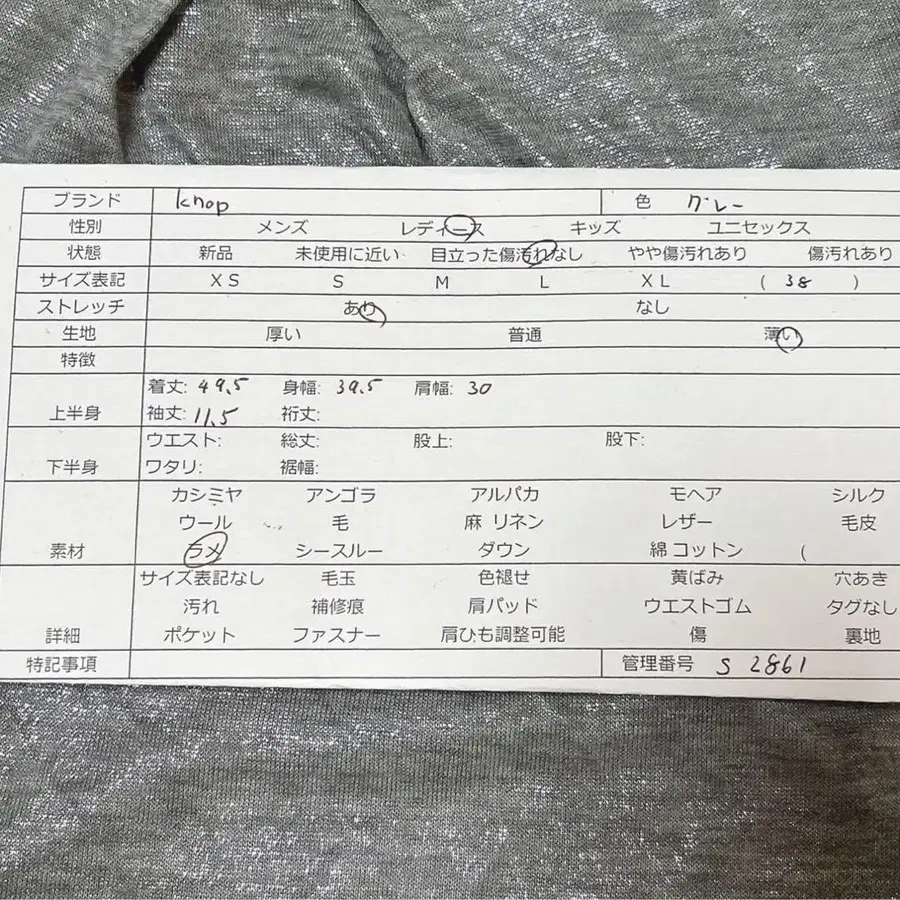 ブランド knop 色 グレー
性別 メンズ レディース キッズ ユニセックス
状態 新品 未使用に近い 目立った傷汚れなし やや傷汚れあり 傷汚れあり
サイズ表記 XS S M L XL ( 38 )
ストレッチ あり なし
生地 厚い 普通 薄い
特徴
着丈: 49.5 身幅: 39.5 肩幅: 30
上半身 袖丈: 11.5 裄丈:
ウエスト: 総丈: 股上: 股下:
下半身 ワタリ: 裾幅:
カシミヤ アンゴラ アルパカ モヘア シルク
ウール 毛 麻 リネン レザー 毛皮
素材 ラメ シースルー ダウン 綿 コットン (
サイズ表記なし 毛玉 色褪せ 黄ばみ 穴あき
汚れ 補修痕 肩パッド ウエストゴム タグなし
詳細 ポケット ファスナー 肩ひも調整可能 傷 裏地
特記事項 管理番号 S 2861